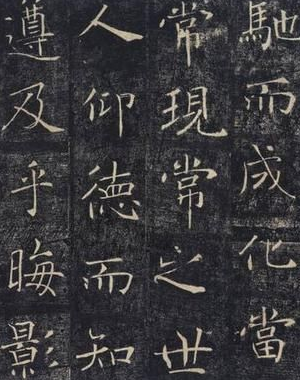 馳而成化當
常現常之世
人仰德而知
遵及乎晦影